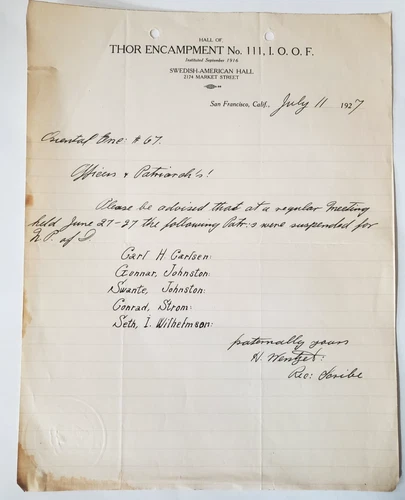 HALL OF
THOR ENCAMPMENT No. 111, I. O. O. F.
Instituted September 1916
SWEDISH-AMERICAN HALL
2174 MARKET STREET
San Francisco, Calif., July 11 1927
Oriental Enc: #67.
Officers & Patriarch's!
Please be advised that at a regular Meeting
held June 27-27 the following Patr:s were suspended for
N.P. of D.
Carl H. Carlsen:
Gonnar, Johnston:
Swante, Johnston:
Conrad, Strom:
Seth, I. Wilhelmson:
fraternally yours
N. Wentzel:
Rec: Scribe